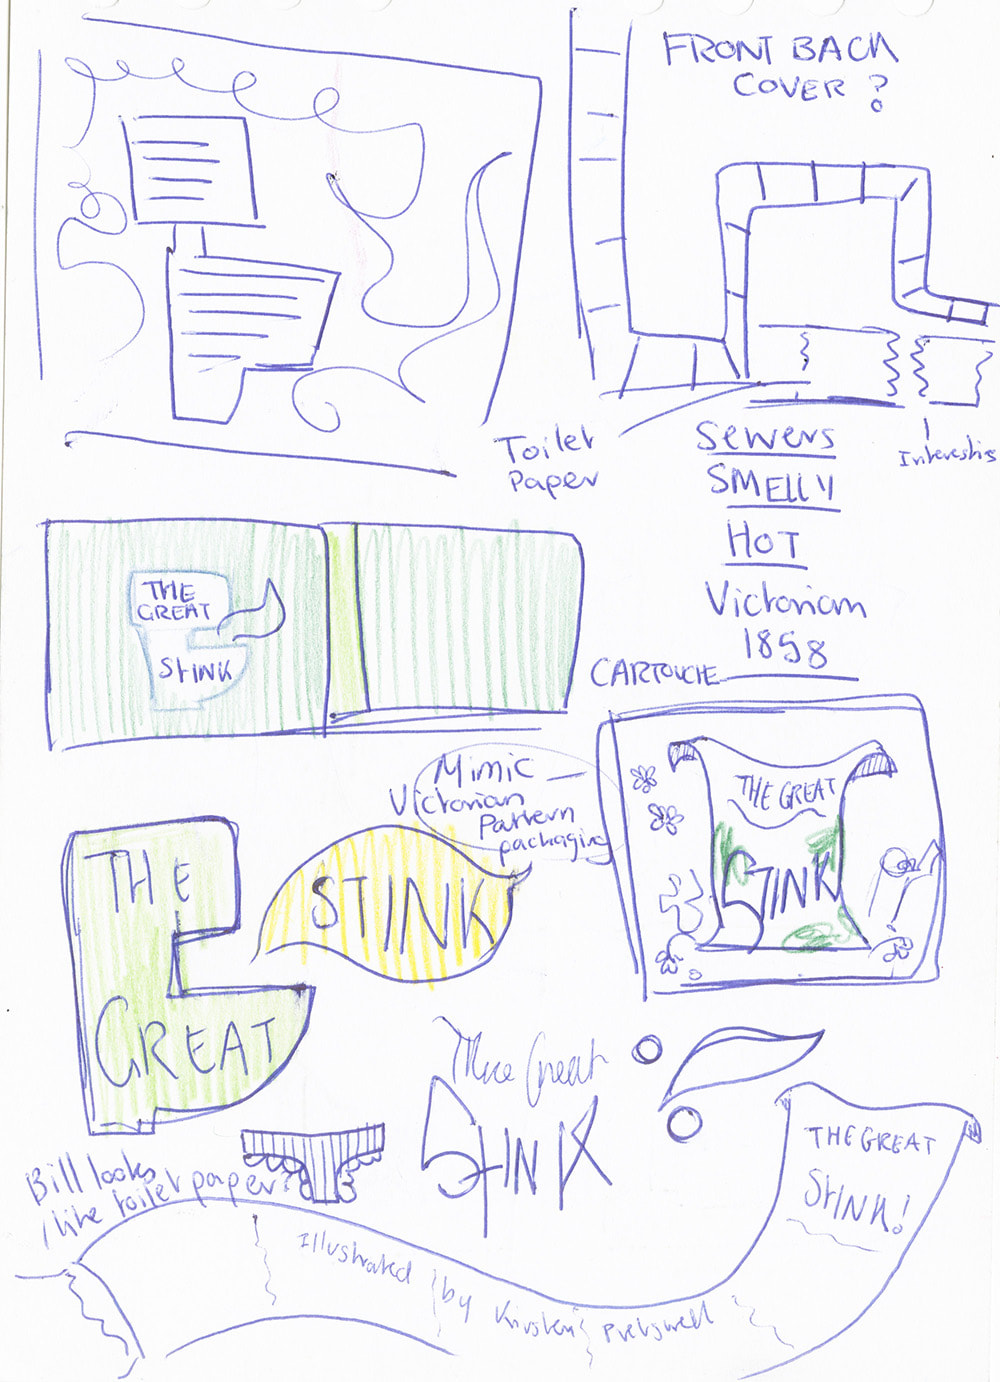 FRONT BACK
COVER ?
Toilet
Paper
Interesting
Sewers
SMELLY
HOT
Victorian
1858
THE
GREAT
STINK
CARTOUCHE
Mimic
Victorian
Pattern
packaging
THE GREAT
STINK
THE
GREAT
STINK
The Great
STINK
THE GREAT
STINK!
Bill looks
like toilet paper?
Illustrated by Kirsten